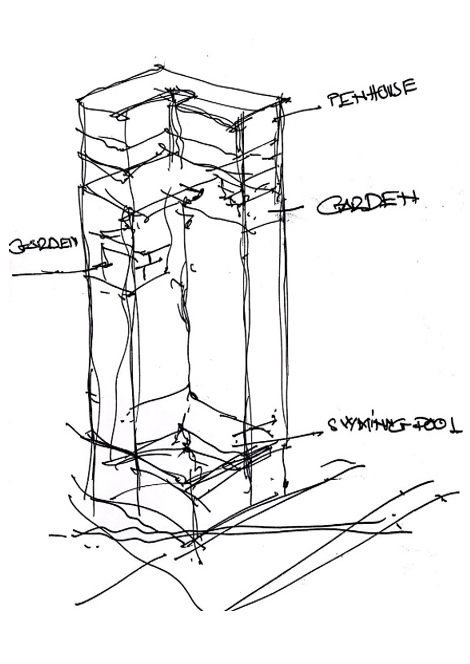 PENHOUSE
GARDEN
GARDEN
SWIMING POOL